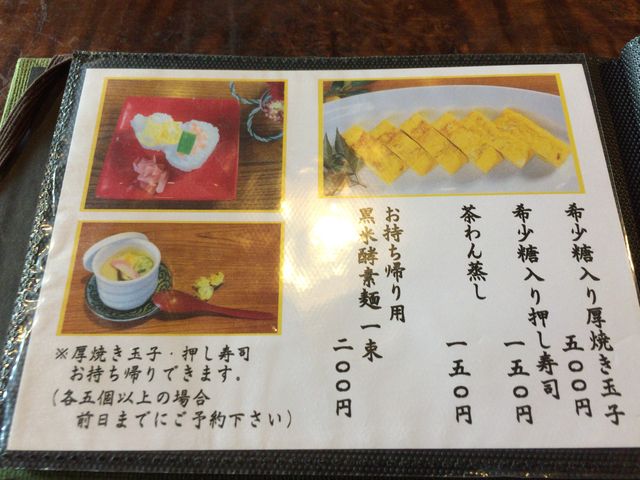 希少糖入り厚焼き玉子
五〇〇円
希少糖入り押し寿司
一五〇円
茶わん蒸し
一五〇円
お持ち帰り用
黒米酵素麺 一束
二〇〇円
※厚焼き玉子・押し寿司
お持ち帰りできます。
(各五個以上の場合
前日までにご予約下さい)